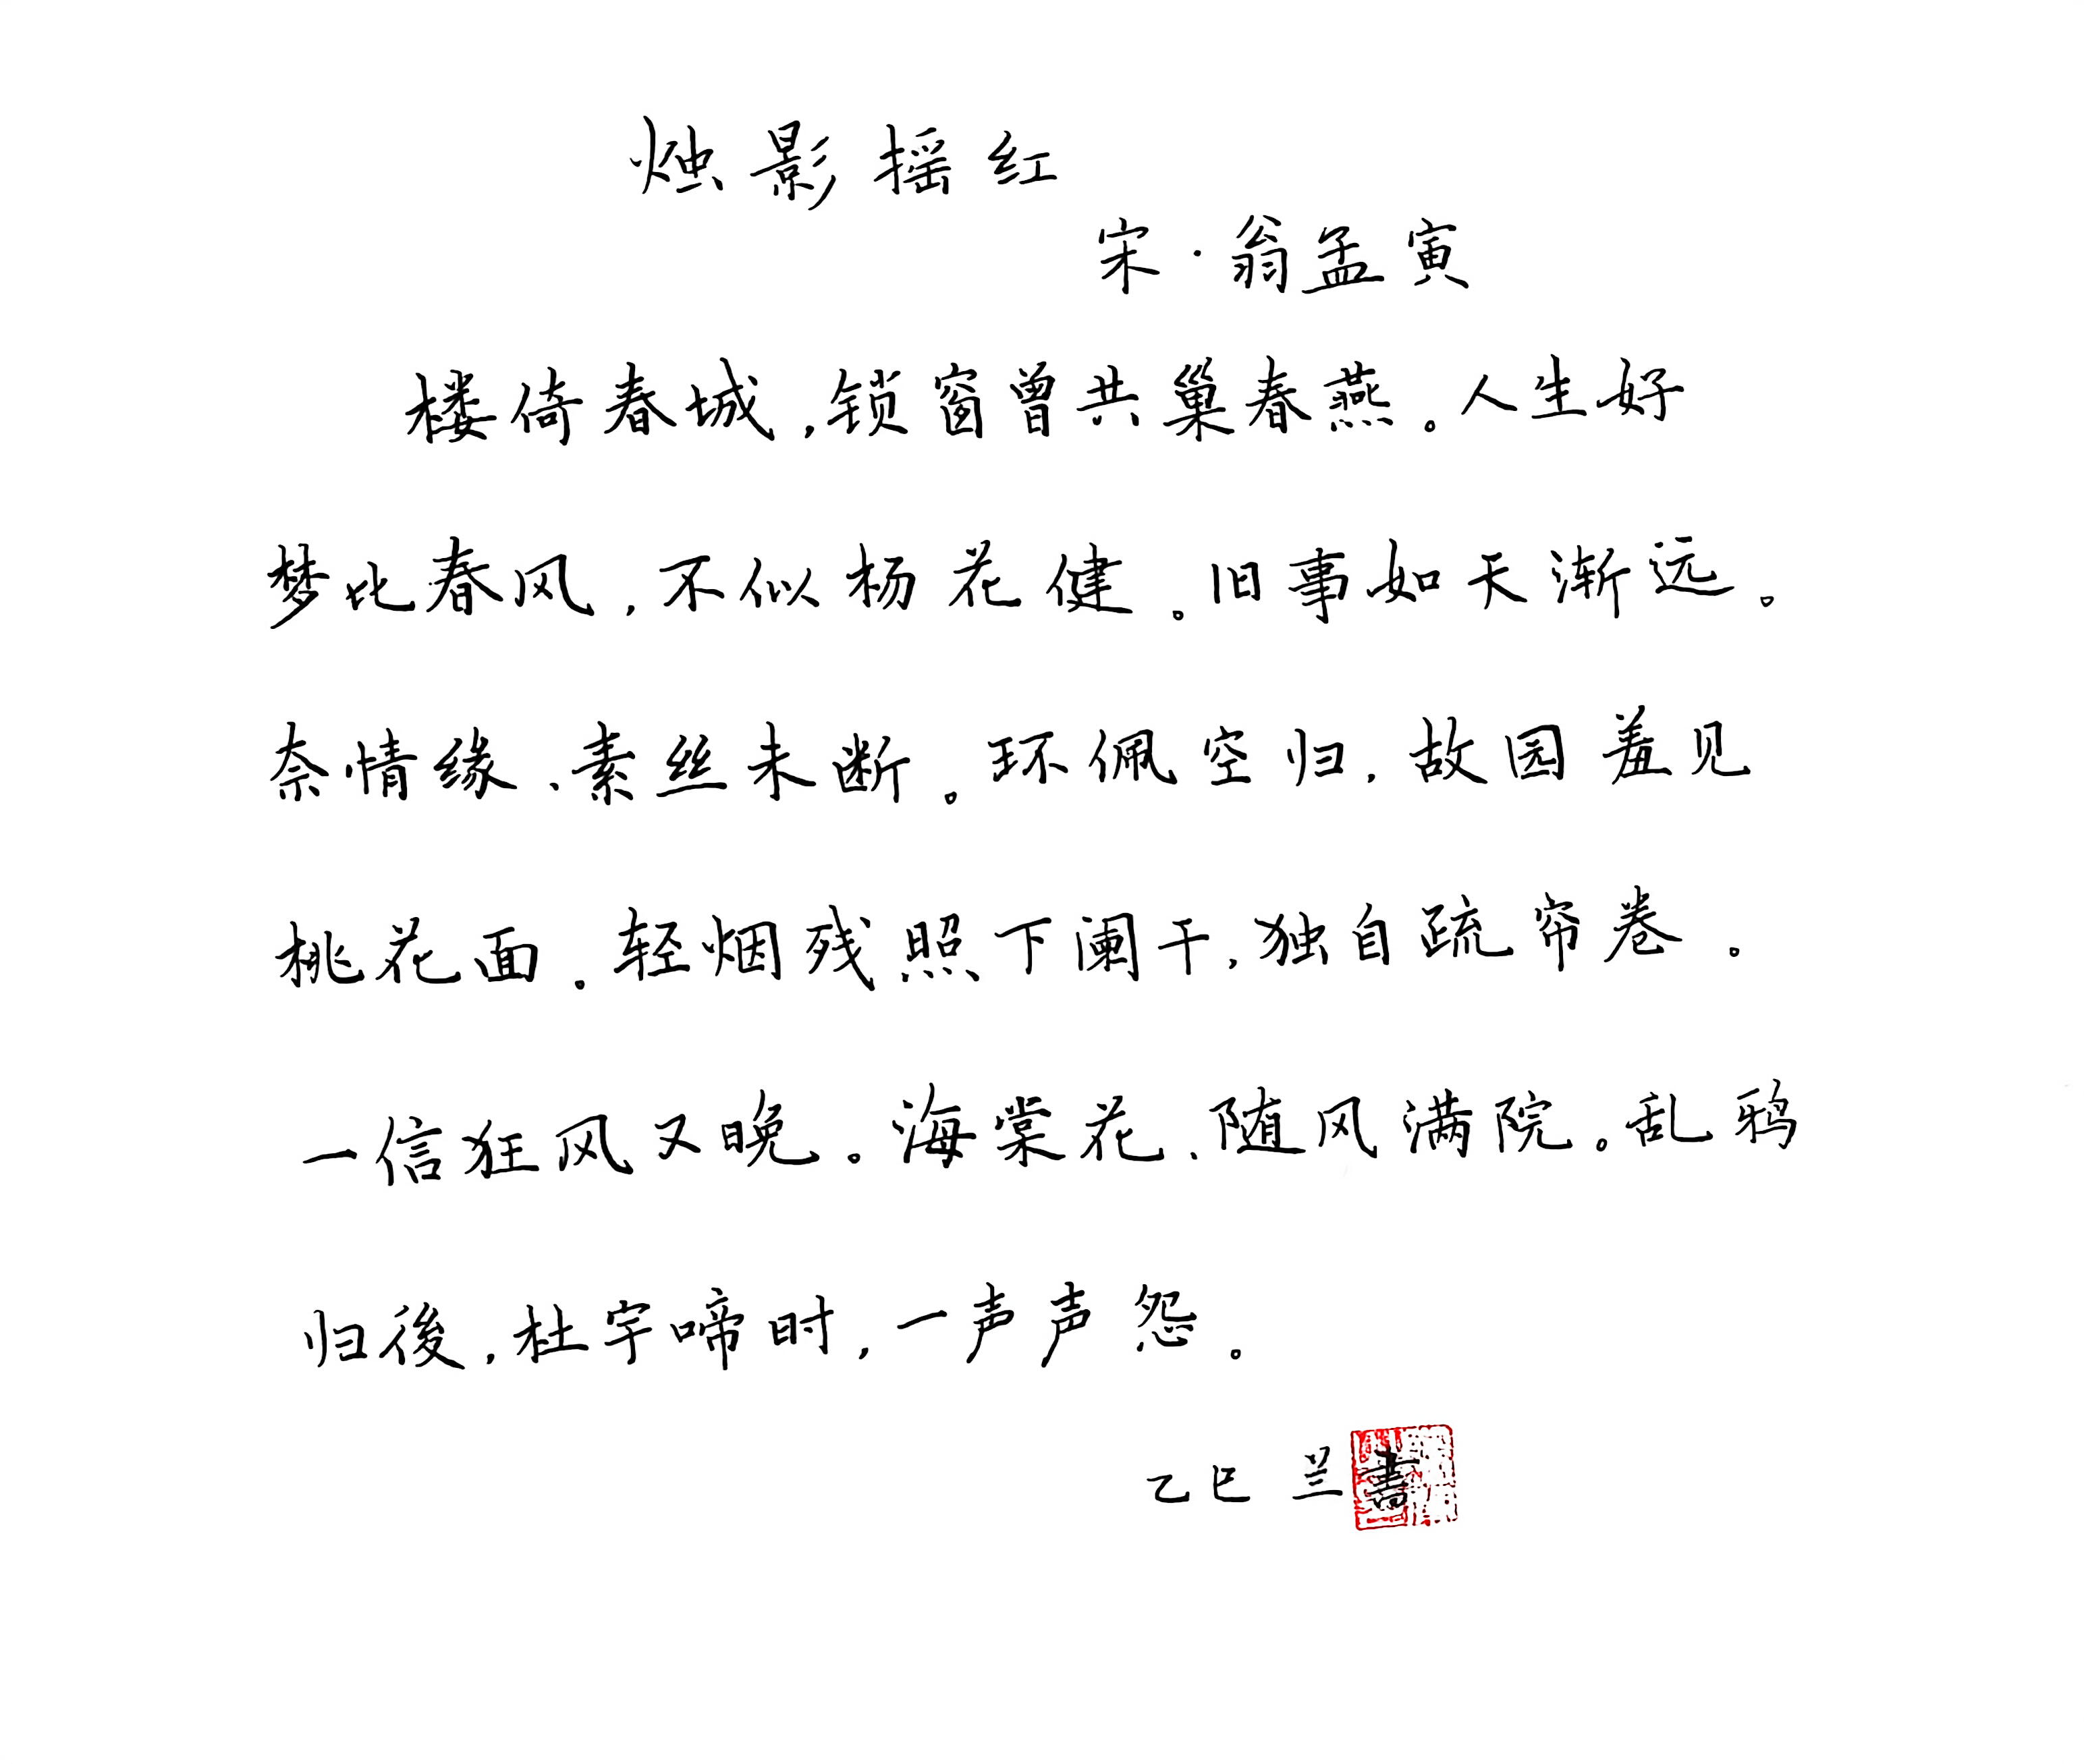 烛影摇红
宋·翁孟寅
楼倚春城，锁窗曾共巢春燕。人生好
梦比春风，不似杨花健。旧事如天渐远。
奈情缘、素丝未断。环佩空归，故园羞见
桃花面。轻烟残照下阑干，独自疏帘卷。
一信狂风又晚。海棠花、随风满院。乱鸦
归後，杜宇啼时，一声声怨。
乙巳 兰書